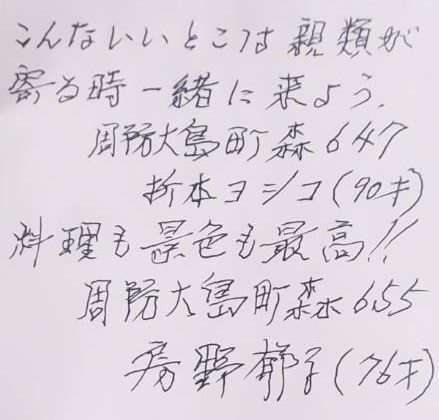 こんないいとこは親類が
寄る時一緒に来よう.
周防大島町森647
折本ヨシコ(90才)
料理も景色も最高!!
周防大島町森655
房野郁子(76才)